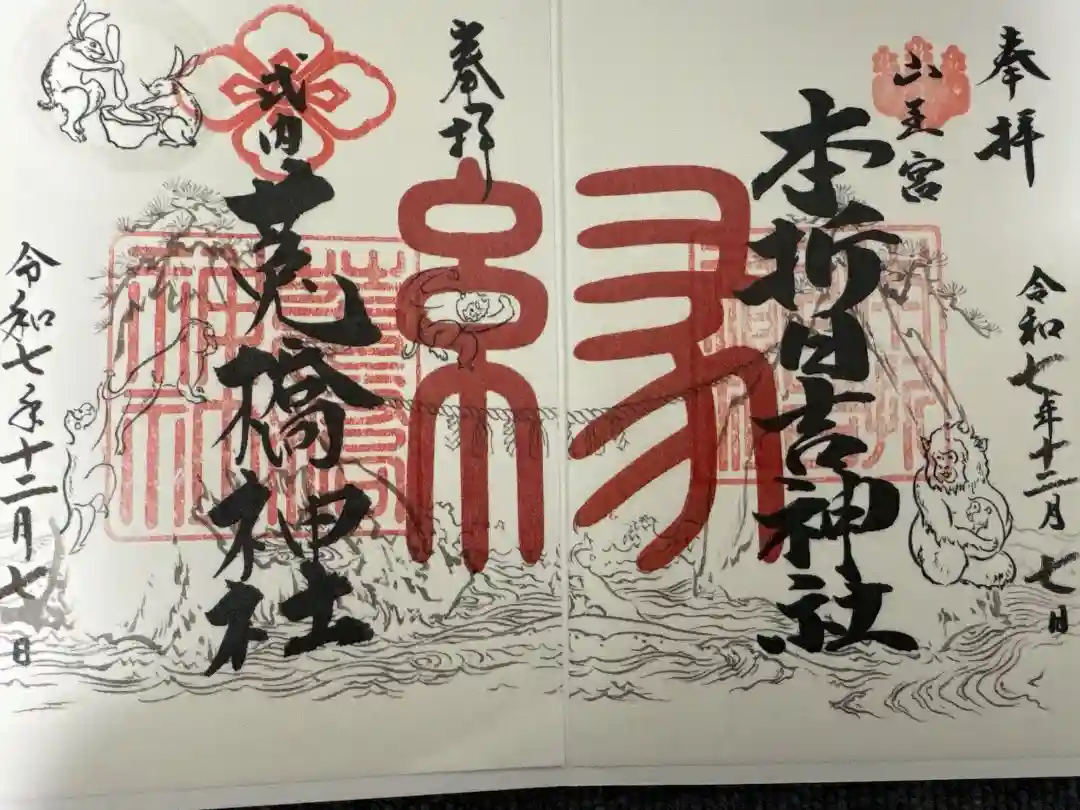 奉拝
令和七年十二月七日
山王宮
本折日吉神社
縁
奉拝
式内
莵橋神社
令和七年十二月七日